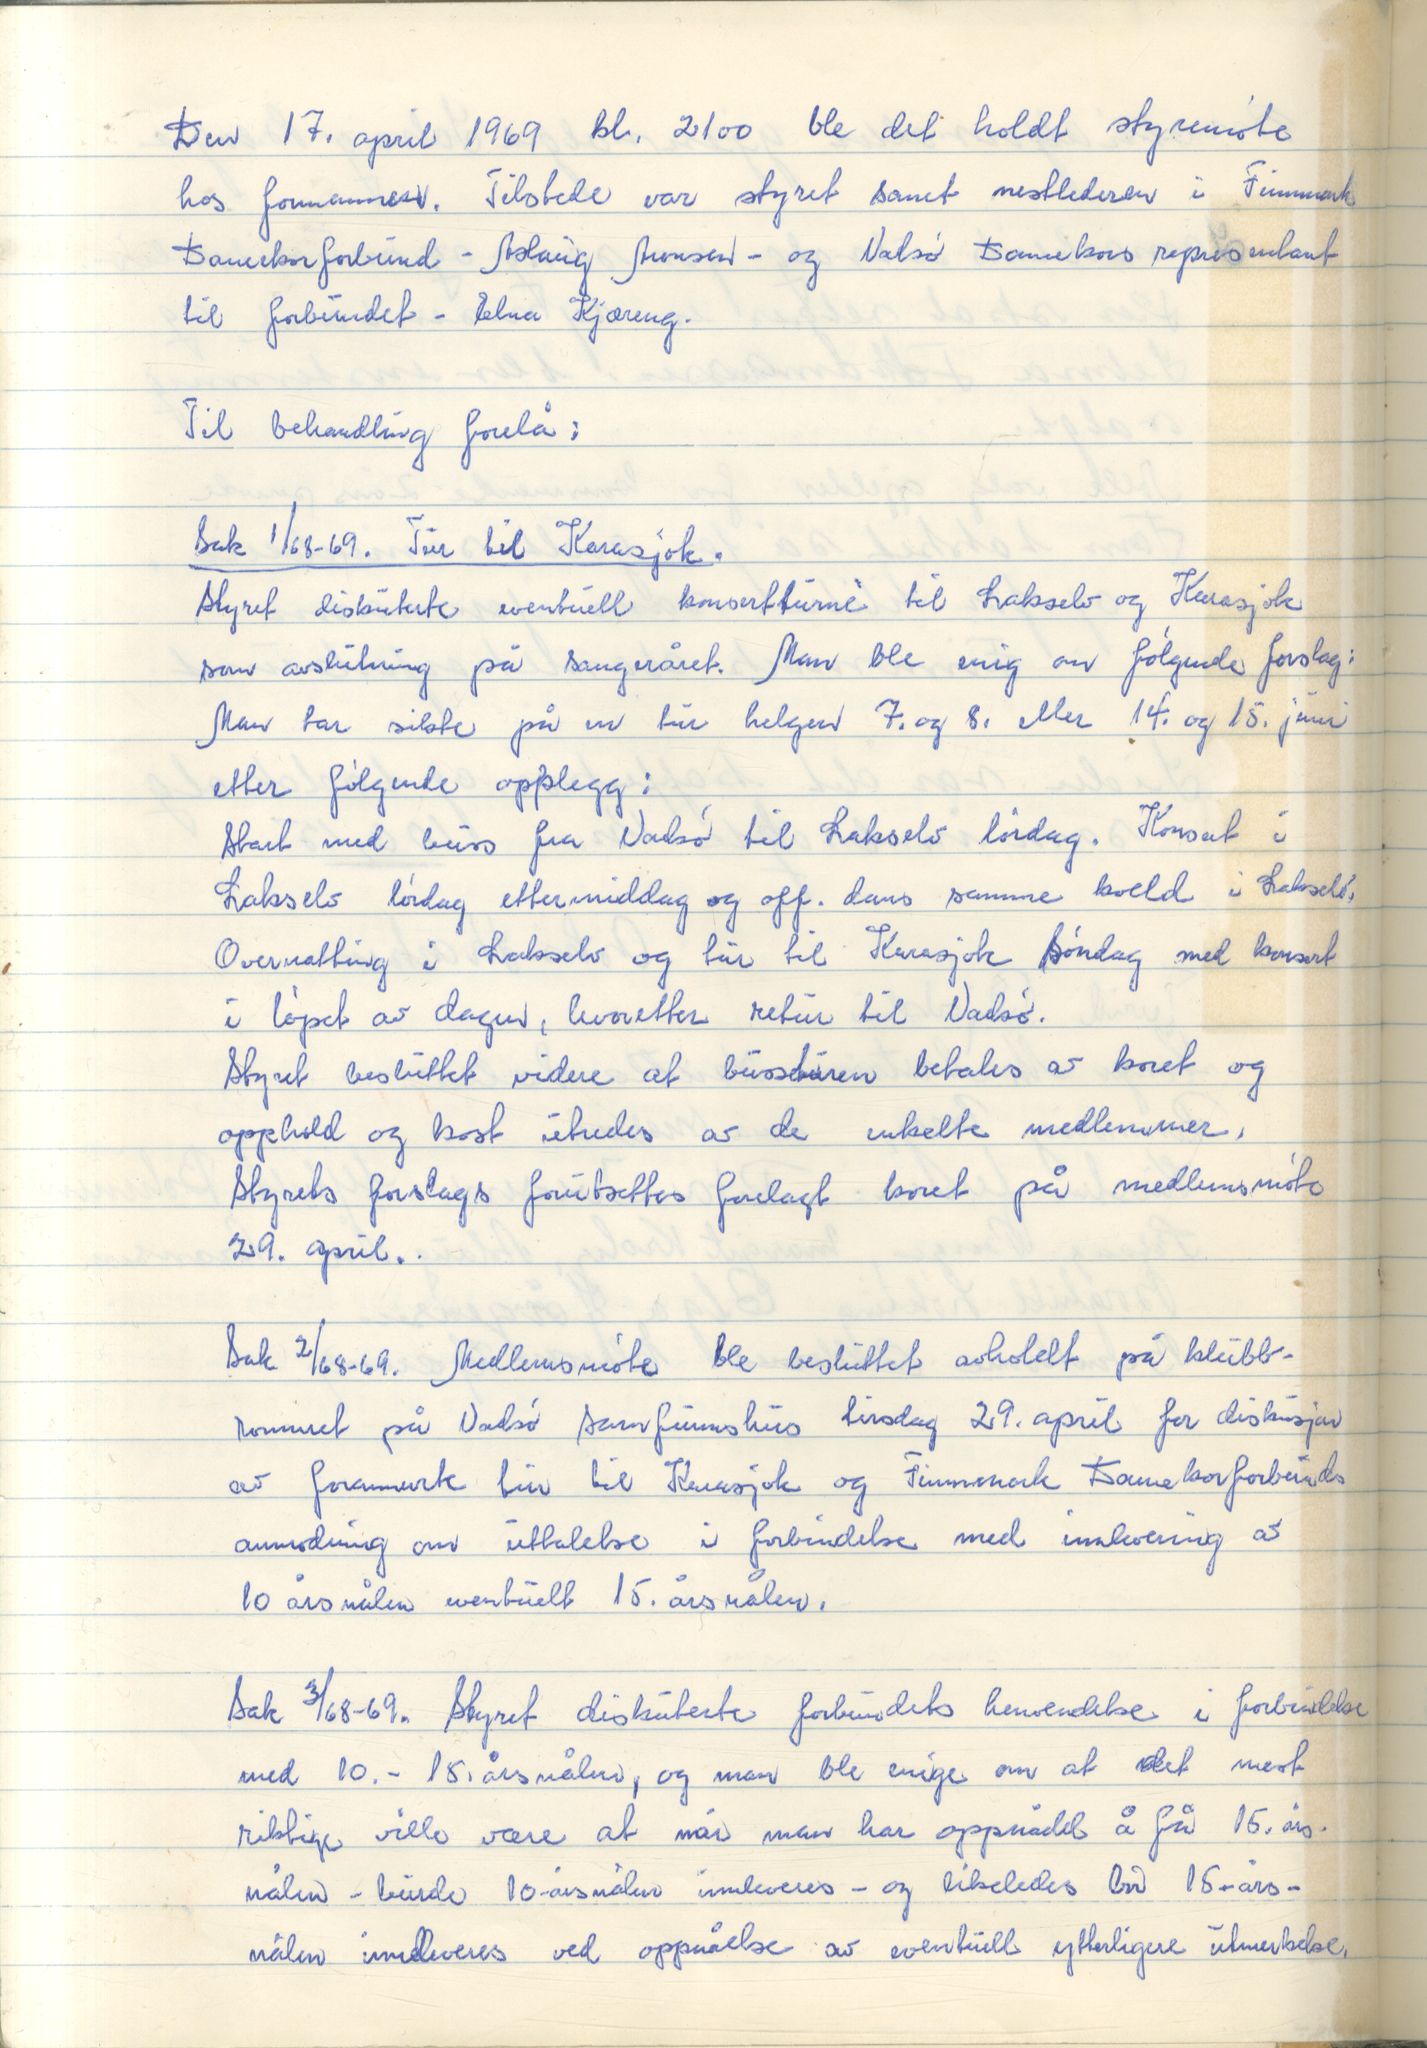 Den 17. april 1969 kl. 2100 ble det holdt styremöte
hos formannen. Tilstede var styret samt nestlederen i Finnmark
Damekorforbund - Aslaug Aronsen - og Vadsö Damekors representant
til forbundet - Edna Kjæreng.
Til behandling forelå:
Sak 1/68-69. Tur til Karasjok.
Styret diskuterte eventuell konsertturné til Lakselv og Karasjok
som avslutning på sangeråret. Man ble enig om fölgende forslag:
Man tar sikte på en tur helgen 7. og 8. eller 14. og 15. juni
etter fölgende opplegg:
Start med buss fra Vadsö til Lakselv lördag. Konsert i
Lakselv lördag ettermiddag og off. dans samme kveld i Lakselv.
Overnatting i Lakselv og tur til Karasjok söndag med konsert
i löpet av dagen, hvoretter retur til Vadsö.
Styret besluttet videre at bussturen betales av koret og
opphold og kost utredes av de enkelte medlemmer.
Styrets forslags forutsettes forelagt koret på medlemsmöte
29. april..
Sak 2/68-69. Medlemsmöte ble besluttet avholdt på klubb-
rommet på Vadsö Samfunnshus tirsdag 29. april for diskusjon
av forannevnte tur til Karasjok og Finnmark Damekorforbunds
anmodning om uttalelse i forbindelse med innlevering av
10 årsnålen eventuelt 15. årsnålen.
Sak 3/68-69. Styret diskuterte forbundets henvendelse i forbindelse
med 10. - 15. årsnålen, og man ble enige om at det mest
riktige ville være at når man har oppnådd å få 15. års-
nålen - burde 10-årsnålen innleveres - og likeledes bör 15-års-
nålen innleveres ved oppnåelse av eventuell ytterligere utmerkelse.